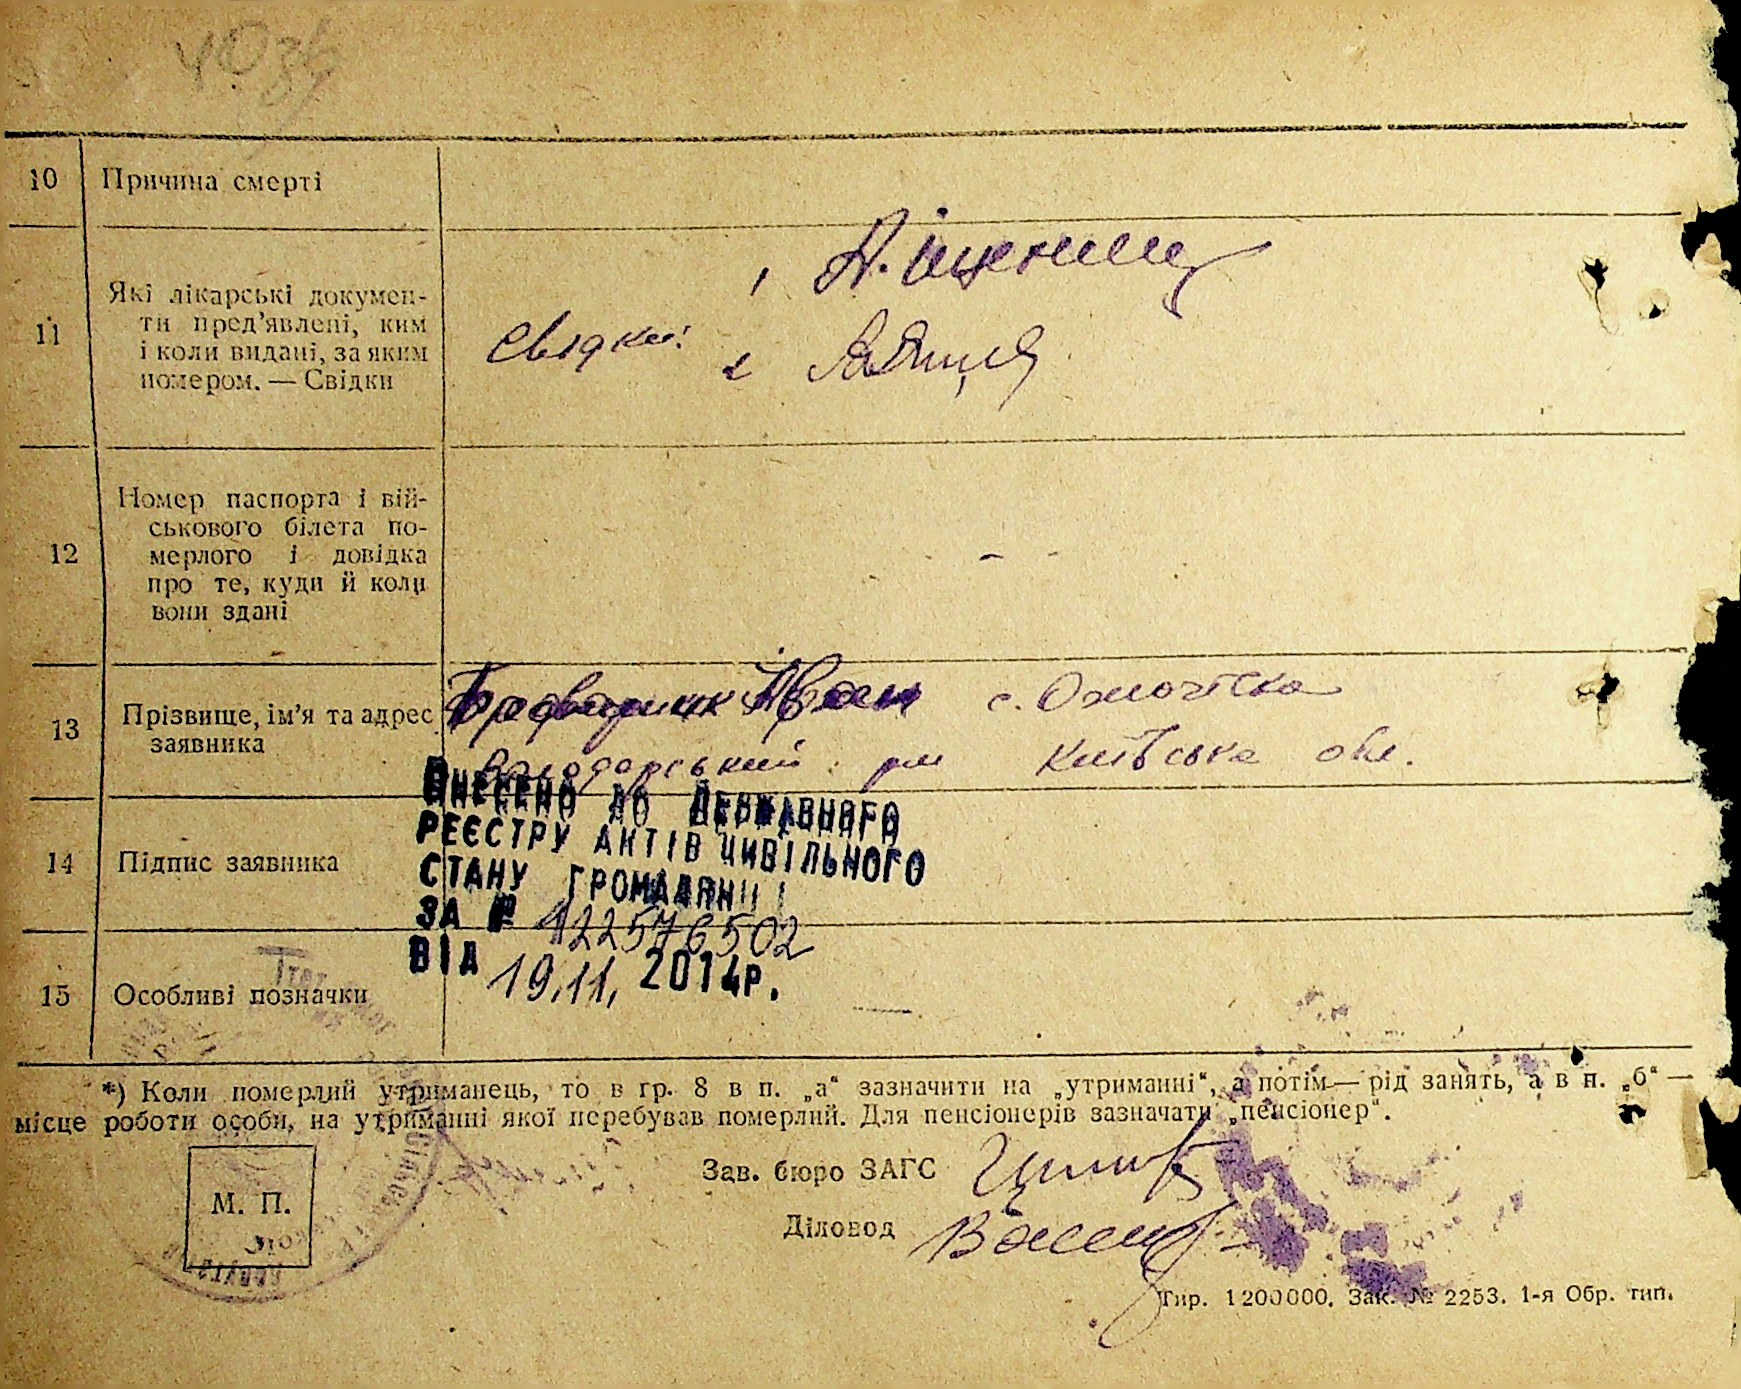 10 Причина смерті
11 Які лікарські докумен-
ти пред'явлені, ким
і коли видані, за яким
номером. — Свідки
Свідки:
1 А.
2
12 Номер паспорта і вій-
ськового білета по-
мерлого і довідка
про те, куди й коли
вони здані
–
13 Прізвище, ім'я та адрес
заявника
Іван с.
Володарський р-н Київська обл.
14 Підпис заявника
ВНЕСЕНО ДО ДЕРЖАВНОГО
РЕЄСТРУ АКТІВ ЦИВІЛЬНОГО
СТАНУ ГРОМАДЯН
ЗА № 422576502
ВІД 19.11. 2014р.
15 Особливі позначки
*) Коли померлий утриманець, то в гр. 8 в п. „а“ зазначити на „утриманні“, а потім — рід занять, а в п. „б“ —
місце роботи особи, на утриманні якої перебував померлий. Для пенсіонерів зазначати „пенсіонер“.
Зав. бюро ЗАГС
М. П.
Діловод
Тир. 1200000. Зак. № 2253. 1-я Обр. тип.